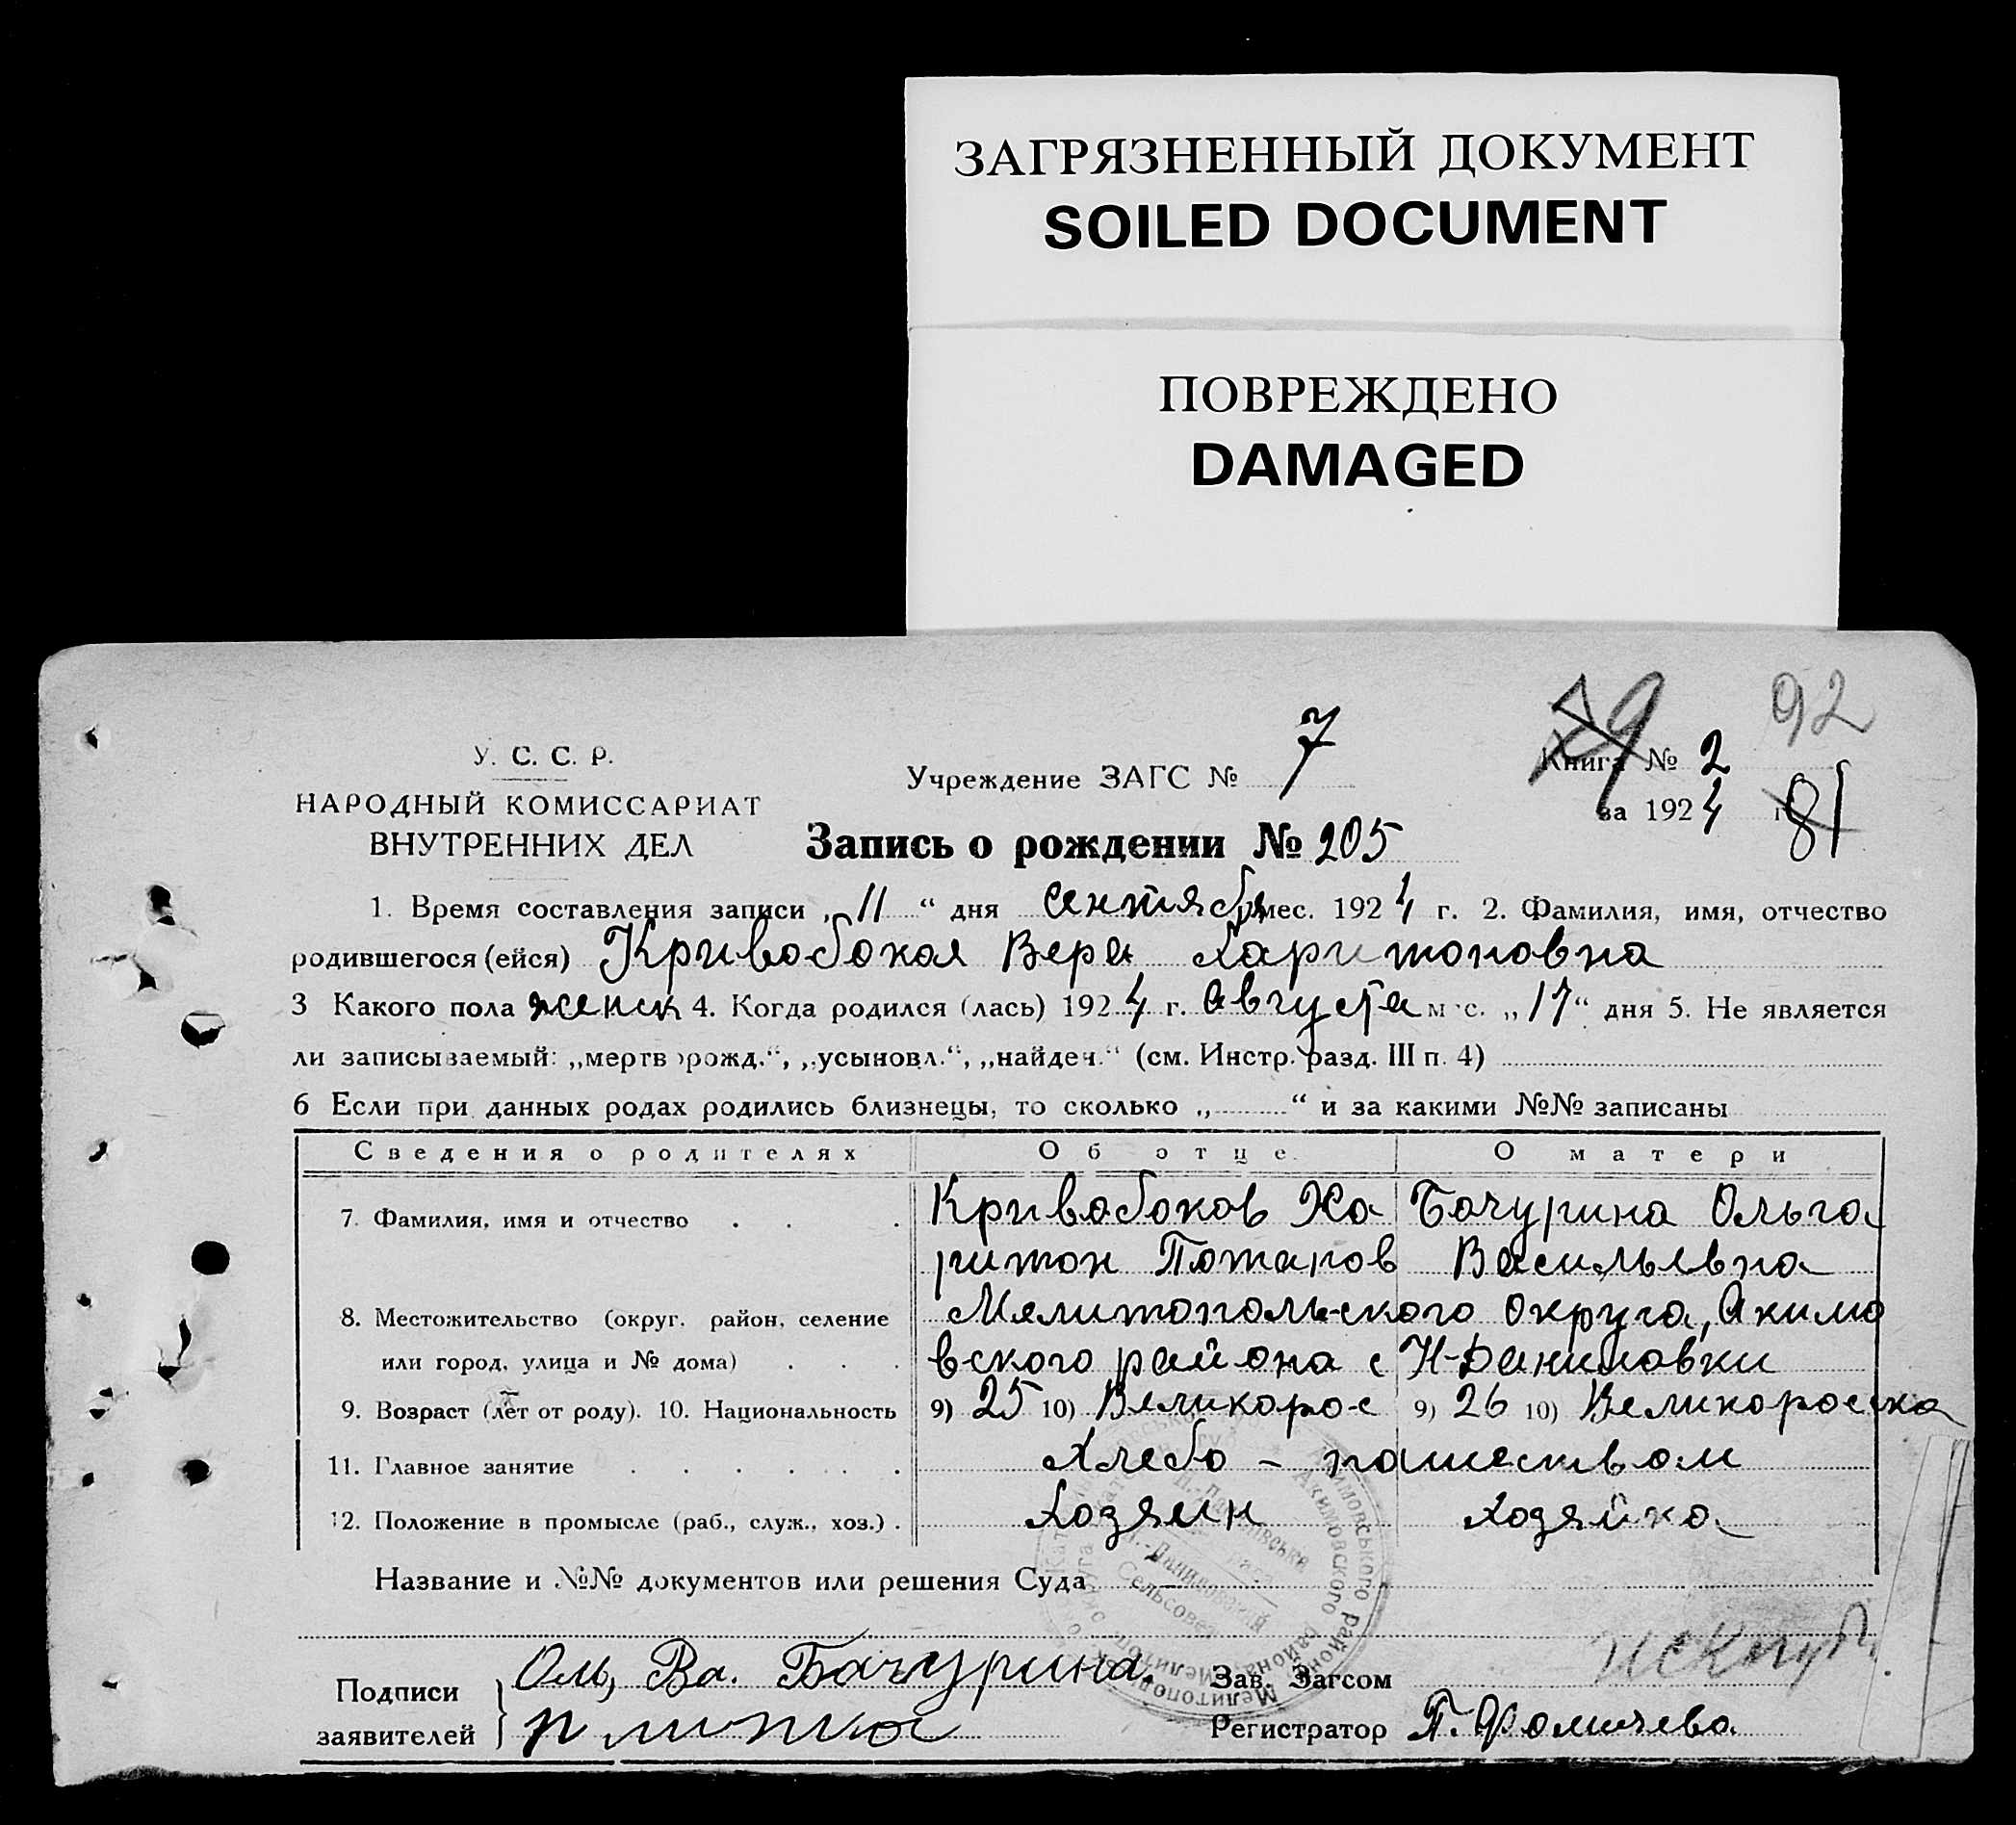 ЗАГРЯЗНЕННЫЙ ДОКУМЕНТ
SOILED DOCUMENT
ПОВРЕЖДЕНО
DAMAGED
92
79
У. С. С. Р.
НАРОДНЫЙ КОМИССАРИАТ
ВНУТРЕННИХ ДЕЛ
Учреждение ЗАГС № 7
Книга № 2
за 1924 г.
81
Запись о рождении № 205
1. Время составления записи „11“ дня сентября мес. 1924 г. 2. Фамилия, имя, отчество
родившегося (ейся) Кривобокая Вера Харитоновна
3 Какого пола женск 4. Когда родился (лась) 1924 г. Августа мес. „17“ дня 5. Не является
ли записываемый: „мертворожд.“, „усыновл.“, „найден.“ (см. Инстр. разд. III п. 4)
6 Если при данных родах родились близнецы, то сколько „ “ и за какими №№ записаны
Сведения о родителях Об отце. О матери
7. Фамилия, имя и отчество Кривобоков Ха Бачурина Ольга
ритон Потапов Васильевна
8. Местожительство (округ, район, селение Мелитопольского округа, Акимо
или город, улица и № дома) вского района с Н-Даниловки
9. Возраст (лет от роду). 10. Национальность 9) 25 10) Великорос 9) 26 10) Великороска
11. Главное занятие Хлебо - пашеством
12. Положение в промысле (раб., служ., хоз.) Хозяин хозяйка
Название и №№ документов или решения Суда
Подписи
заявителей
Оль, Ва. Бачурина.
Зав. Загсом
Регистратор П. Фомичева